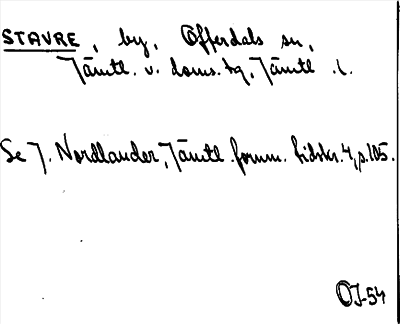 STAVRE, by, Offerdals sn,
Jämtl. v. doms. tg, Jämtl. l.
Se J. Nordlander, Jämtl. fornm. tidskr. 4, s. 105.
OJ-54